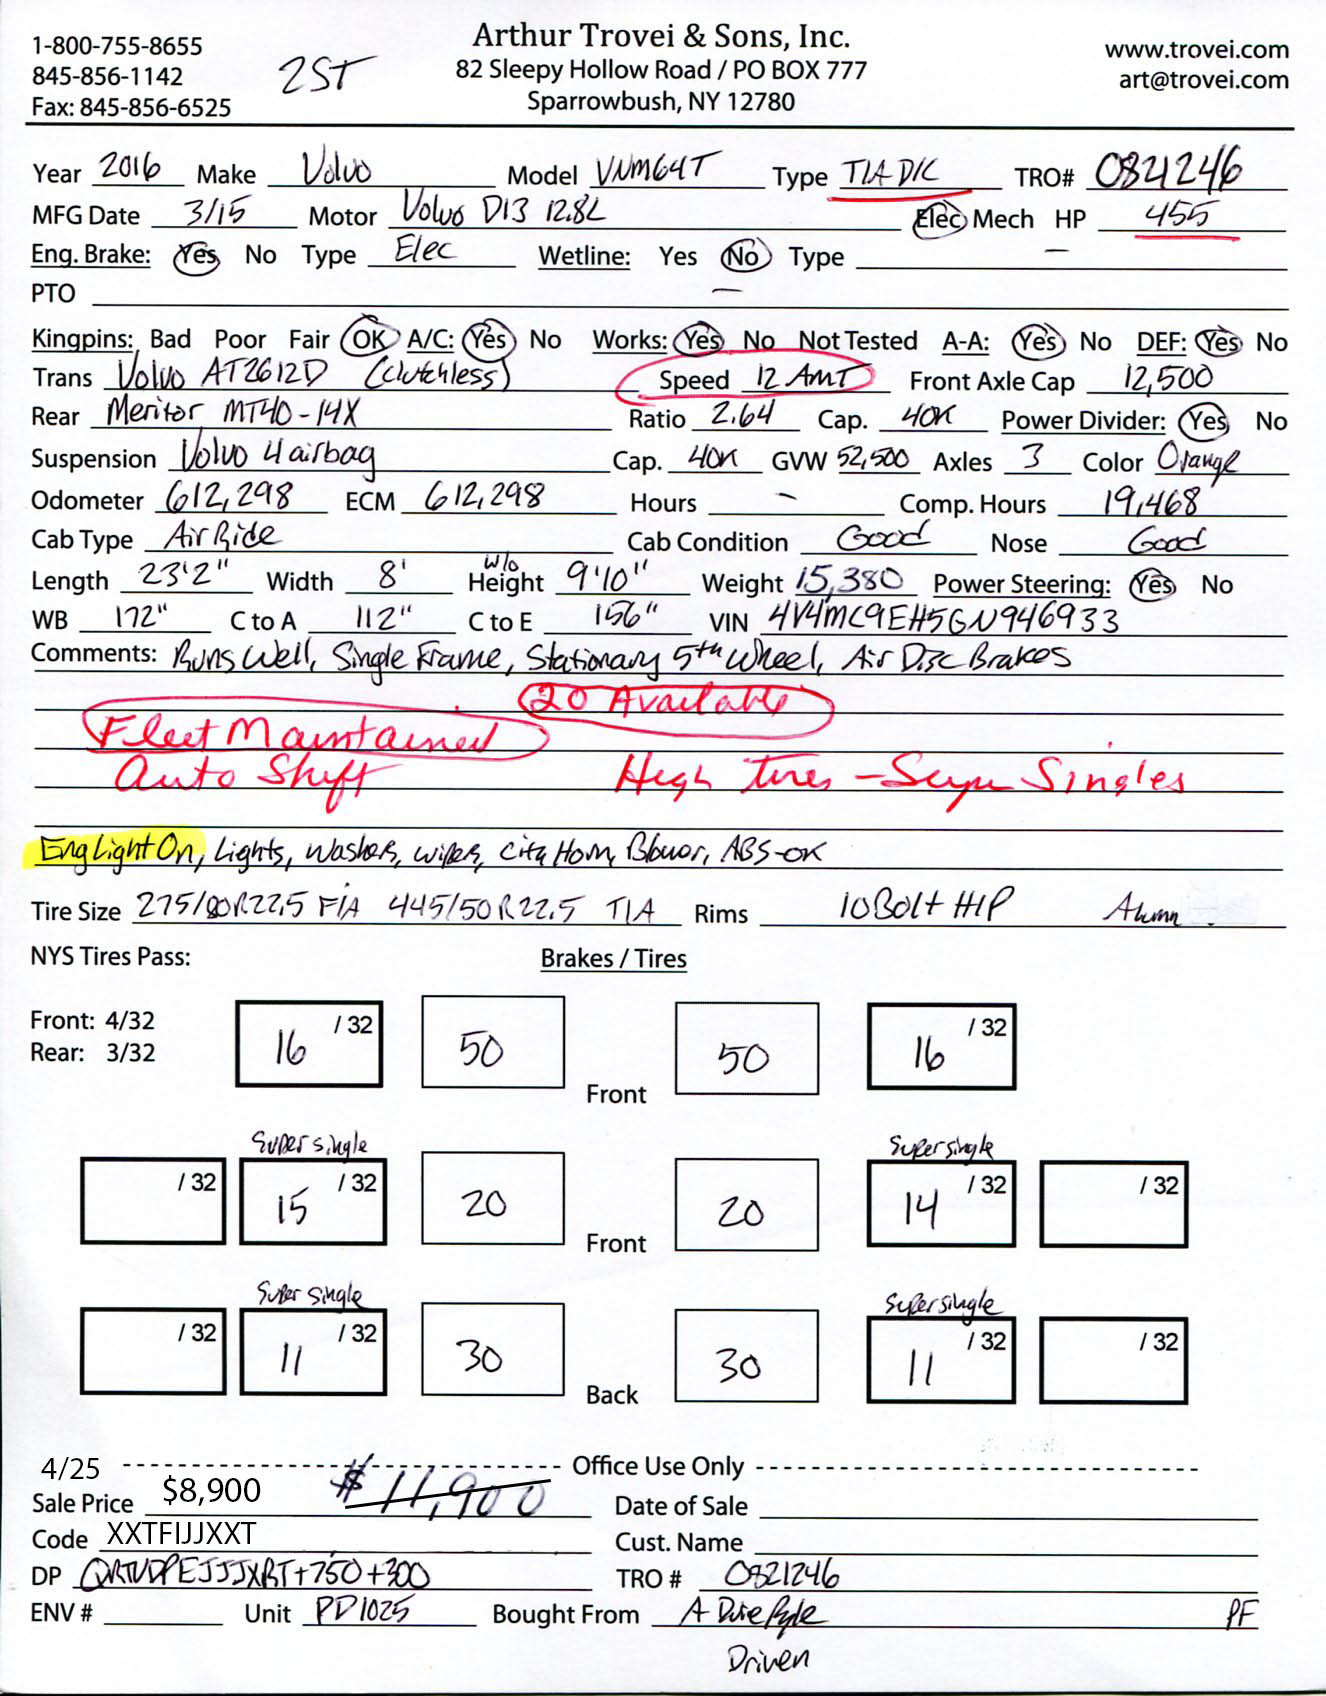 1-800-755-8655
845-856-1142
Fax: 845-856-6525
2ST
Arthur Trovei & Sons, Inc.
82 Sleepy Hollow Road / PO BOX 777
Sparrowbush, NY 12780
www.trovei.com
art@trovei.com
Year 2016 Make Volvo Model VNM64T Type T/A D/C TRO# 0821246
MFG Date 3/15 Motor Volvo D13 12.8L Elec Mech HP 455
Eng. Brake: Yes No Type Elec Wetline: Yes No Type —
PTO —
Kingpins: Bad Poor Fair OK A/C: Yes No Works: Yes No Not Tested A-A: Yes No DEF: Yes No
Trans Volvo AT2612D (Clutchless) Speed 12 AMT Front Axle Cap 12,500
Rear Meritor MT40-14X Ratio 2.64 Cap. 40K Power Divider: Yes No
Suspension Volvo 4 airbag Cap. 40K GVW 52,500 Axles 3 Color Orange
Odometer 612,298 ECM 612,298 Hours - Comp. Hours 19,468
Cab Type Air Ride Cab Condition Good Nose Good
Length 23'2" Width 8' w/o Height 9'10" Weight 15,380 Power Steering: Yes No
WB 172" C to A 112" C to E 156" VIN 4V4MC9EH5GN946933
Comments: Runs Well, Single Frame, Stationary 5th Wheel, Air Disc Brakes
20 Available
Fleet Maintained
Auto Shift High tires - Super Singles
Eng Light On, Lights, Washers, Wipers, City Horn, Blower, ABS-OK
Tire Size 275/80R22.5 F/A 445/50R22.5 T/A Rims 10 Bolt H/P Alumn
NYS Tires Pass: Brakes / Tires
Front: 4/32
Rear: 3/32
16 /32 50 Front 50 16 /32
Super single Super single
/32 15 /32 20 Front 20 14 /32 /32
Super single Super single
/32 11 /32 30 Back 30 11 /32 /32
4/25 Office Use Only
Sale Price $8,900 $11,900 Date of Sale
Code XXTFIJJXXT Cust. Name
DP QRTVDPEJJJXRT+750+300 TRO # 0821246
ENV # Unit PD1025 Bought From A Duie Pyle PF
Driven